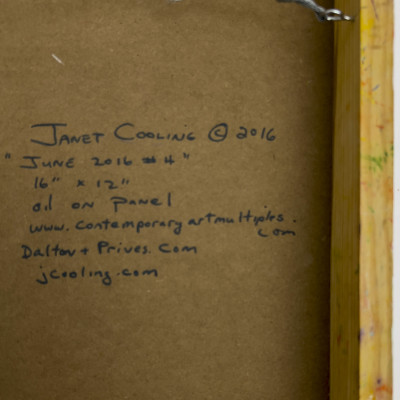 JANET COOLING © 2016
"JUNE 2016 #4"
16" x 12"
oil on panel
www.contemporaryartmultiples.
com
Dalton + Prives.com
jcooling.com